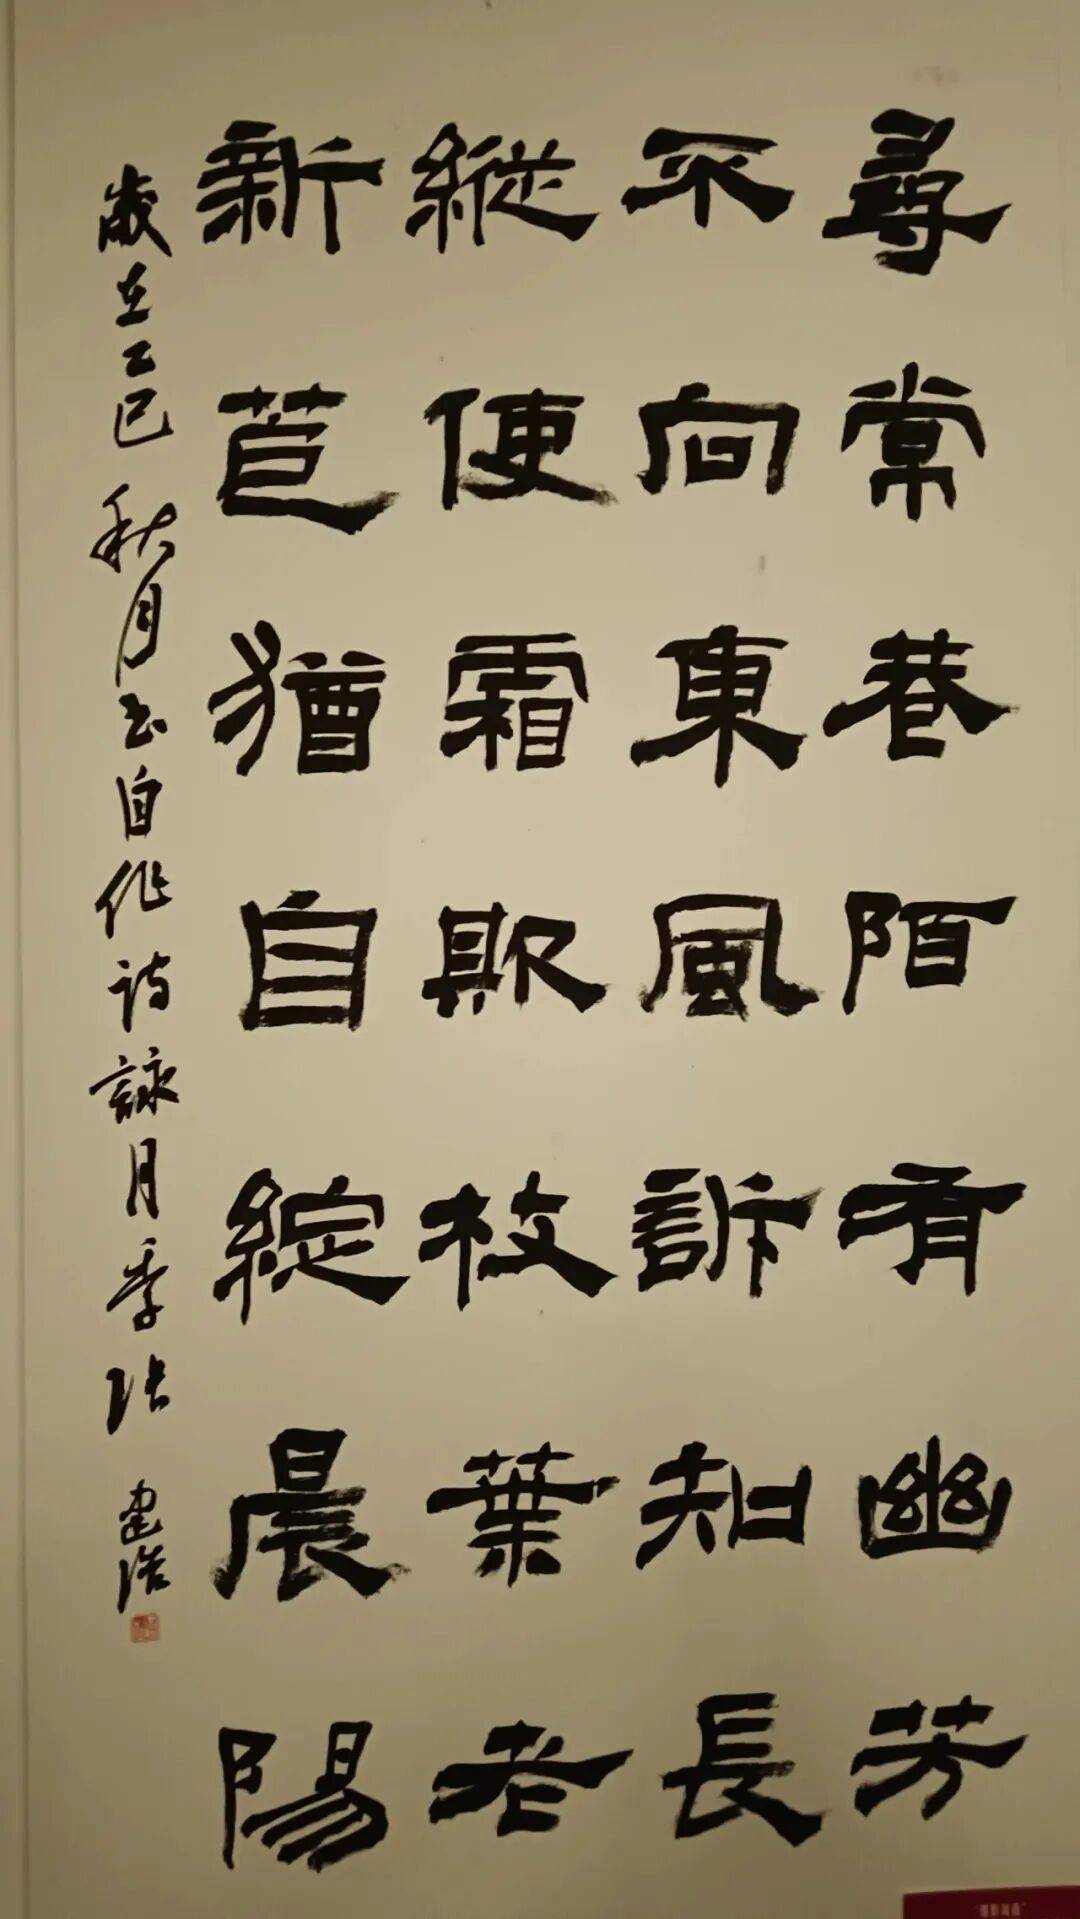 尋常巷陌有幽芳
不向東風訴知長
縱使霜欺枝葉老
新苞猶自綻晨陽
歲在乙巳秋月书自作诗詠月季张建浩